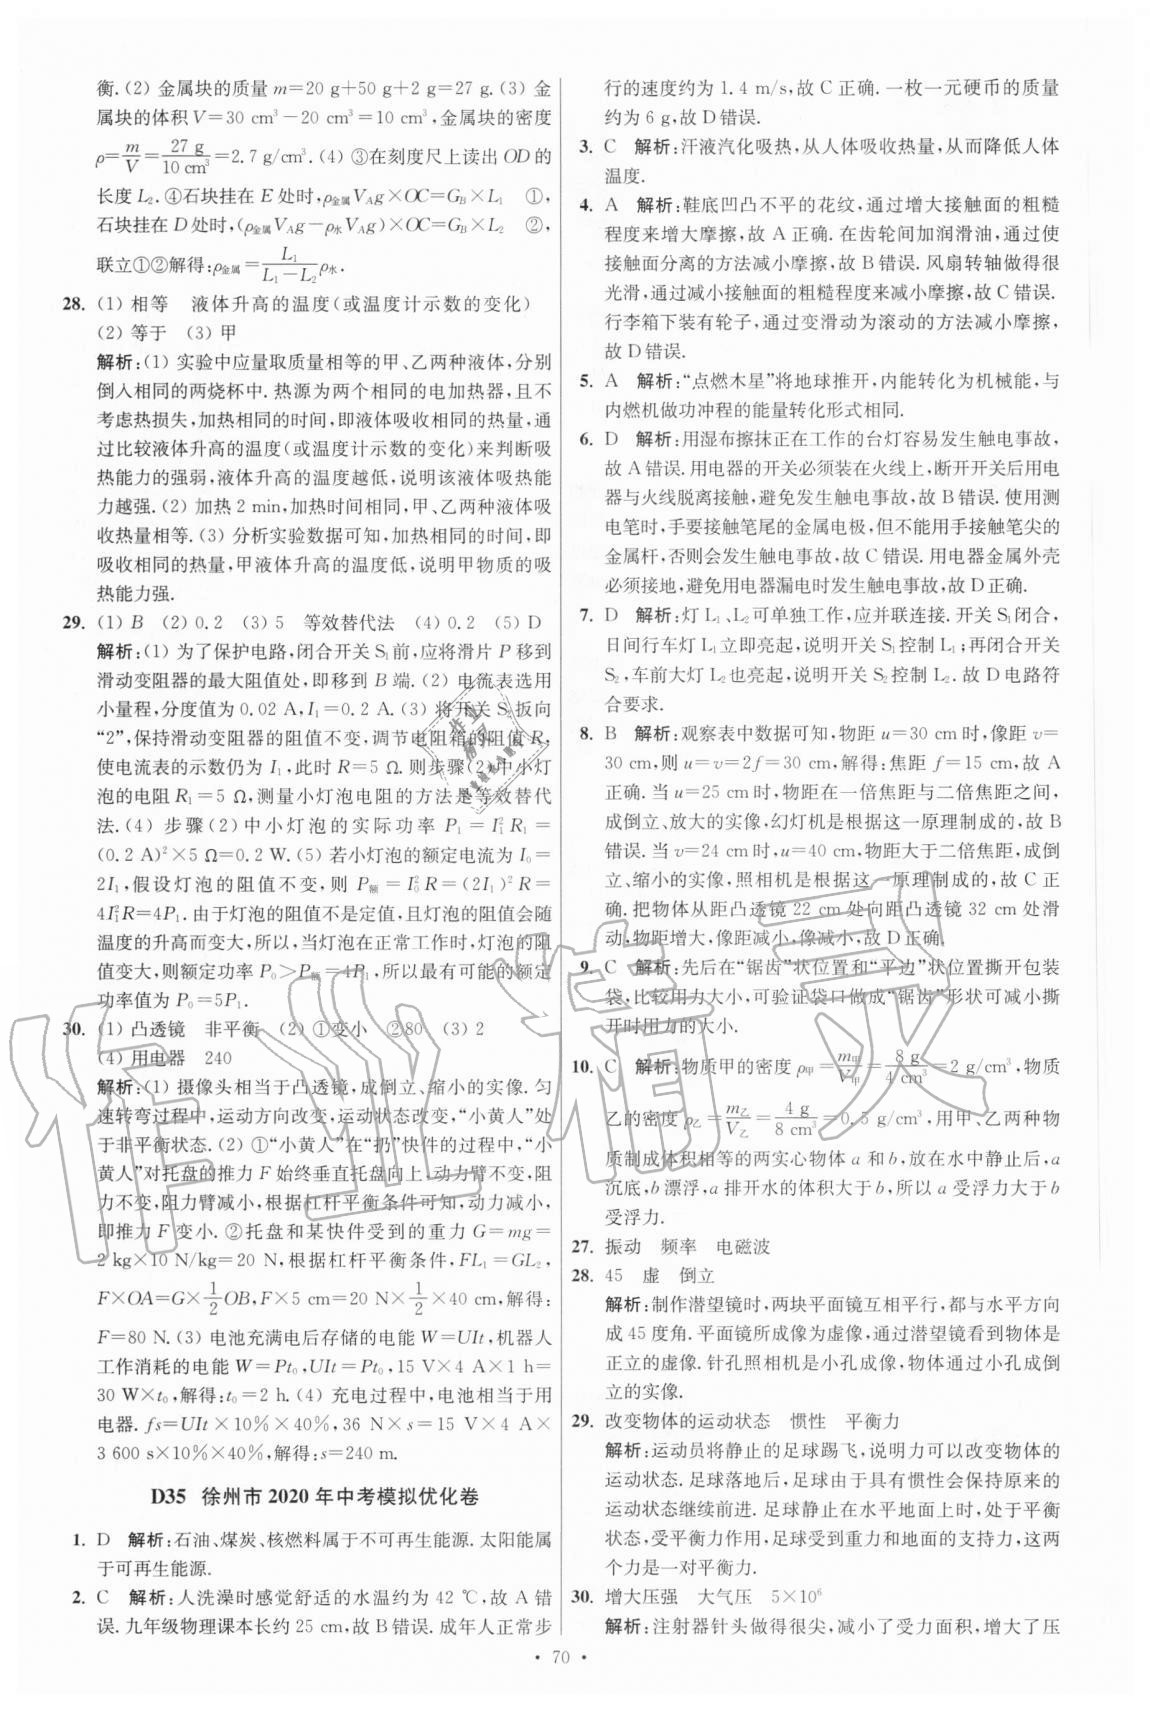 衡.(2) 金属块的质量 m=20 g+50 g+2 g=27 g.(3) 金
属块的体积 V=30 cm³-20 cm³=10 cm³,金属块的密度
ρ=m/V=27 g/10 cm³=2.7 g/cm³.(4) ③在刻度尺上读出 OD 的
长度 L₂.④石块挂在 E 处时,ρ金属VAg×OC=GB×L₁ ①,
石块挂在 D 处时,(ρ金属VAg-ρ水VAg)×OC=GB×L₂ ②,
联立①②解得:ρ金属=L₁/(L₁-L₂)ρ水.
28. (1) 相等 液体升高的温度(或温度计示数的变化)
(2) 等于 (3) 甲
解析:(1) 实验中应量取质量相等的甲、乙两种液体,分别
倒入相同的两烧杯中.热源为两个相同的电加热器,且不
考虑热损失,加热相同的时间,即液体吸收相同的热量,通
过比较液体升高的温度(或温度计示数的变化)来判断吸
热能力的强弱,液体升高的温度越低,说明该液体吸热能
力越强.(2) 加热 2 min,加热时间相同,甲、乙两种液体吸
收热量相等.(3) 分析实验数据可知,加热相同的时间,即
吸收相同的热量,甲液体升高的温度低,说明甲物质的吸
热能力强.
29. (1) B (2) 0.2 (3) 5 等效替代法 (4) 0.2 (5) D
解析:(1) 为了保护电路,闭合开关 S₁前,应将滑片 P 移到
滑动变阻器的最大阻值处,即移到 B 端.(2) 电流表选用
小量程,分度值为 0.02 A,I₁=0.2 A.(3) 将开关 S₂扳向
“2”,保持滑动变阻器的阻值不变,调节电阻箱的阻值 R,
使电流表的示数仍为 I₁,此时 R=5 Ω.则步骤(2)中小灯
泡的电阻 R₁=5 Ω,测量小灯泡电阻的方法是等效替代
法.(4) 步骤(2)中小灯泡的实际功率 P₁=I₁²R₁=
(0.2 A)²×5 Ω=0.2 W.(5) 若小灯泡的额定电流为 I₀=
2I₁,假设灯泡的阻值不变,则 P额=I₀²R=(2I₁)²R=
4I₁²R=4P₁.由于灯泡的阻值不是定值,且灯泡的阻值会随
温度的升高而变大,所以,当灯泡在正常工作时,灯泡的阻
值变大,则额定功率 P₀>P额=4P₁,所以最有可能的额定
功率值为 P₀=5P₁.
30. (1) 凸透镜 非平衡 (2) ①变小 ②80 (3) 2
(4) 用电器 240
解析:(1) 摄像头相当于凸透镜,成倒立、缩小的实像.匀
速转弯过程中,运动方向改变,运动状态改变,“小黄人”处
于非平衡状态.(2) ①“小黄人”在“扔”快件的过程中,“小
黄人”对托盘的推力 F 始终垂直托盘向上,动力臂不变,阻
力不变,阻力臂减小,根据杠杆平衡条件可知,动力减小,
即推力 F 变小.②托盘和某快件受到的重力 G=mg=
2 kg×10 N/kg=20 N,根据杠杆平衡条件,FL₁=GL₂,
F×OA=G×1/2OB,F×5 cm=20 N×1/2×40 cm,解得:
F=80 N.(3) 电池充满电后存储的电能 W=UIt,机器人
工作消耗的电能 W=Pt₀,UIt=Pt₀,15 V×4 A×1 h=
30 W×t₀,解得:t₀=2 h.(4) 充电过程中,电池相当于用
电器.fs=UIt×10%×40%,36 N×s=15 V×4 A×
3 600 s×10%×40%,解得:s=240 m.
D35 徐州市 2020 年中考模拟优化卷
1. D 解析:石油、煤炭、核燃料属于不可再生能源.太阳能属
于可再生能源.
2. C 解析:人洗澡时感觉舒适的水温约为 42 ℃,故 A 错
误.九年级物理课本长约 25 cm,故 B 错误.成年人正常步
行的速度约为 1.4 m/s,故 C 正确.一枚一元硬币的质量
约为 6 g,故 D 错误.
3. C 解析:汗液汽化吸热,从人体吸收热量,从而降低人体
温度.
4. A 解析:鞋底凹凸不平的花纹,通过增大接触面的粗糙
程度来增大摩擦,故 A 正确.在齿轮间加润滑油,通过使
接触面分离的方法减小摩擦,故 B 错误.风扇转轴做得很
光滑,通过减小接触面的粗糙程度来减小摩擦,故 C 错误.
行李箱下装有轮子,通过变滑动为滚动的方法减小摩擦,
故 D 错误.
5. A 解析:“点燃木星”将地球推开,内能转化为机械能,与
内燃机做功冲程的能量转化形式相同.
6. D 解析:用湿布擦抹正在工作的台灯容易发生触电事故,
故 A 错误.用电器的开关必须装在火线上,断开开关后用电
器与火线脱离接触,避免发生触电事故,故 B 错误.使用测
电笔时,手要接触笔尾的金属电极,但不能用手接触笔尖的
金属杆,否则会发生触电事故,故 C 错误.用电器金属外壳
必须接地,避免用电器漏电时发生触电事故,故 D 正确.
7. D 解析:灯 L₁、L₂可单独工作,应并联连接.开关 S₁闭合,
日间行车灯 L₁立即亮起,说明开关 S₁控制 L₁;再闭合开关
S₂,车前大灯 L₂也亮起,说明开关 S₂控制 L₂.故 D 电路符
合要求.
8. B 解析:观察表中数据可知,物距 u=30 cm 时,像距 v=
30 cm,则 u=v=2f=30 cm,解得:焦距 f=15 cm,故 A
正确.当 u=25 cm 时,物距在一倍焦距与二倍焦距之间,
成倒立、放大的实像,幻灯机是根据这一原理制成的,故 B
错误.当 v=24 cm 时,u=40 cm,物距大于二倍焦距,成倒
立、缩小的实像,照相机是根据这一原理制成的,故 C 正
确.把物体从距凸透镜 22 cm 处向距凸透镜 32 cm 处滑
动,物距增大,像距减小,像减小,故 D 正确.
9. C 解析:先后在“锯齿”状位置和“平边”状位置撕开包装
袋,比较用力大小,可验证袋口做成“锯齿”形状可减小撕
开时用力的大小.
10. C 解析:物质甲的密度 ρ甲=m甲/V甲=8 g/4 cm³=2 g/cm³,物质
乙的密度 ρ乙=m乙/V乙=4 g/8 cm³=0.5 g/cm³,用甲、乙两种物
质制成体积相等的两实心物体 a 和 b,放在水中静止后,a
沉底,b 漂浮,a 排开水的体积大于 b,所以 a 受浮力大于 b
受浮力.
27. 振动 频率 电磁波
28. 45 虚 倒立
解析:制作潜望镜时,两块平面镜互相平行,都与水平方向
成 45 度角.平面镜所成像为虚像,通过潜望镜看到物体是
正立的虚像.针孔照相机是小孔成像,物体通过小孔成倒
立的实像.
29. 改变物体的运动状态 惯性 平衡力
解析:运动员将静止的足球踢飞,说明力可以改变物体的
运动状态.足球落地后,足球由于具有惯性会保持原来的
运动状态继续前进.足球静止在水平地面上时,处于平衡
状态,受平衡力作用,足球受到重力和地面的支持力,这两
个力是一对平衡力.
30. 增大压强 大气压 5×10⁶
解析:注射器针头做得很尖,减小了受力面积,增大了压
• 70 •
作业精灵